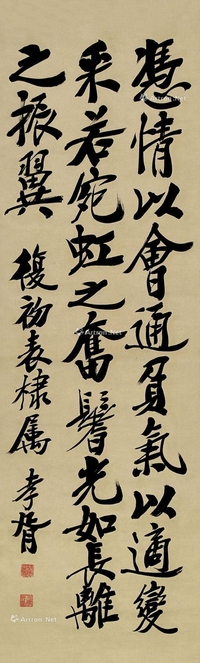 憑情以會通負氣以適變
采若宛虹之奮鬐光如長離
之振翼 復初表棣属 孝胥
Artron.Net